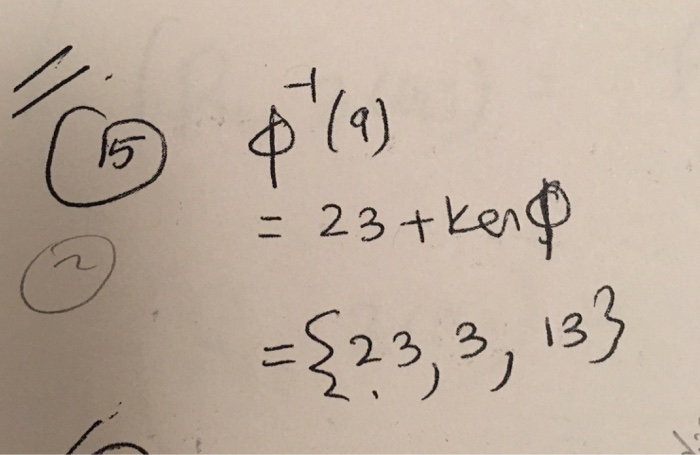 15 φ⁻¹(9)
= 23 + Ker φ
2
= {23, 3, 13}